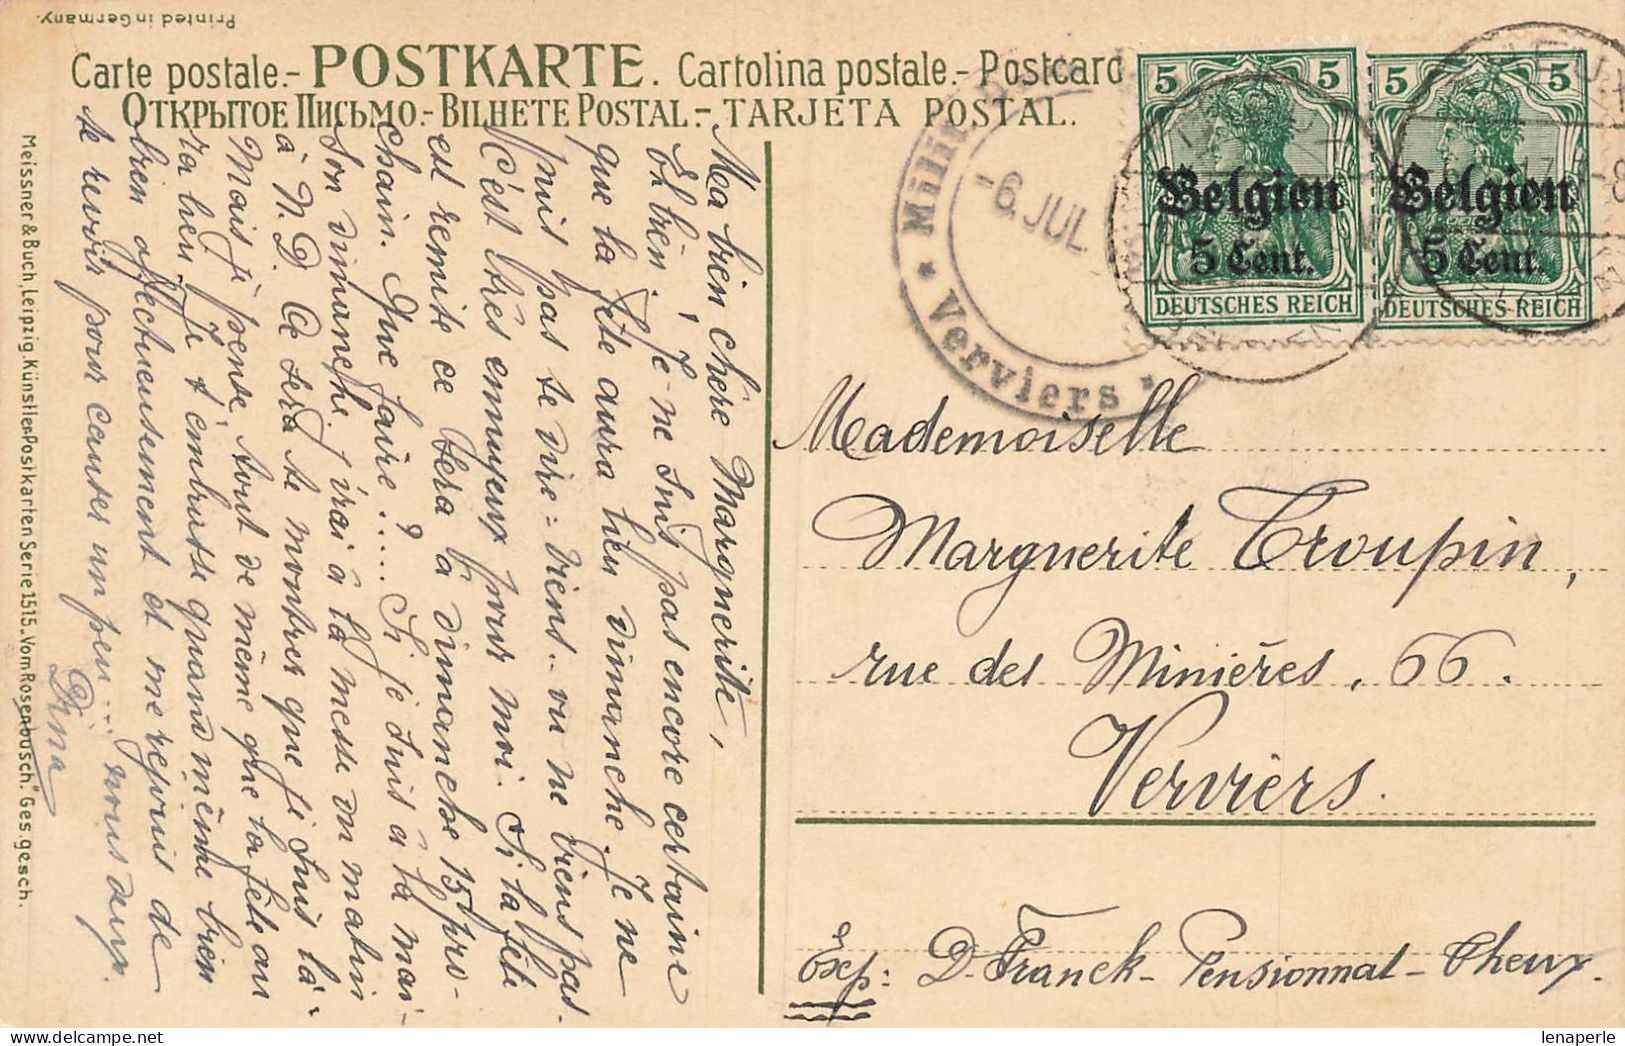 Printed in Germany.
Carte postale.- POSTKARTE. Cartolina postale.- Postcard
Открытое Письмо.- BILHETE POSTAL.- TARJETA POSTAL.
Meissner & Buch, Leipzig. Künstler-Postkarten Serie 1515. „Vom Rosenbusch." Ges. gesch.
Ma bien chère Marguerite,
Eh bien, je ne suis pas encore certaine
que la fête aura lieu dimanche. Je ne
puis pas te dire: viens.. ou ne viens pas.
C'est très ennuyeux pour moi. Si la fête
est remise ce sera à dimanche 15 pro-
chain. Que faire ..... ? Si je suis à la mai-
son dimanche j'irai à la messe du matin
à N.D. Ce sera te montrer que je suis là.
Mais je pense, tout de même que la fête au-
ra lieu. Je t'embrasse quand même bien
bien affectueusement et me réjouis de
te revoir pour causer un peu.... nous deux.
Dina
Milit
* Verviers *
-6. JUL
5 5
Belgien
5 Cent.
DEUTSCHES REICH
5 5
Belgien
5 Cent.
DEUTSCHES REICH
Mademoiselle
Marguerite Troupin,
rue des Minières, 66.
Verviers.
Exp: D. Franck - Pensionnat - Theux.
lenaperle